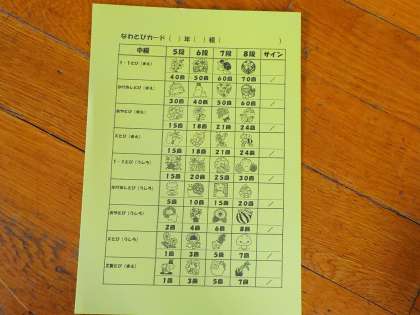 なわとびカード（ ）年（ ）組（ ）
中級 5段 6段 7段 8段 サイン
1・1とび（まえ） 40回 50回 60回 70回 ／
かけあしとび（まえ） 30回 40回 50回 60回 ／
あやとび（まえ） 15回 18回 21回 24回 ／
とび（まえ） 15回 18回 21回 24回 ／
1・1とび（うしろ） 15回 20回 25回 30回 ／
かけあしとび（うしろ） 5回 10回 15回 20回 ／
あやとび（うしろ） 2回 4回 6回 8回 ／
とび（うしろ） 1回 3回 5回 7回 ／
とび（まえ） 1回 3回 5回 7回 ／